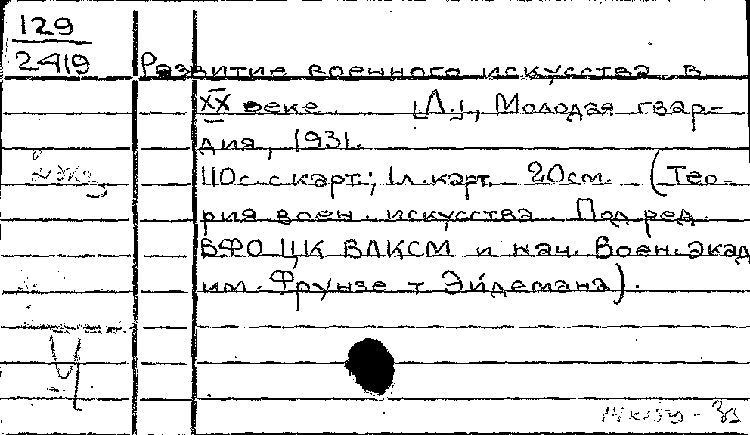 129
2419
Развитие военного искусства в
XX веке. [Л.], Молодая гвар-
дия, 1931.
110с. с карт.; 1л. карт. 20см. (Тео-
рия воен. искусства. Под ред.
ВФО ЦК ВЛКСМ и нач. Воен. акад
им. Фрунзе т Эйдемана).
2 экз
Ч